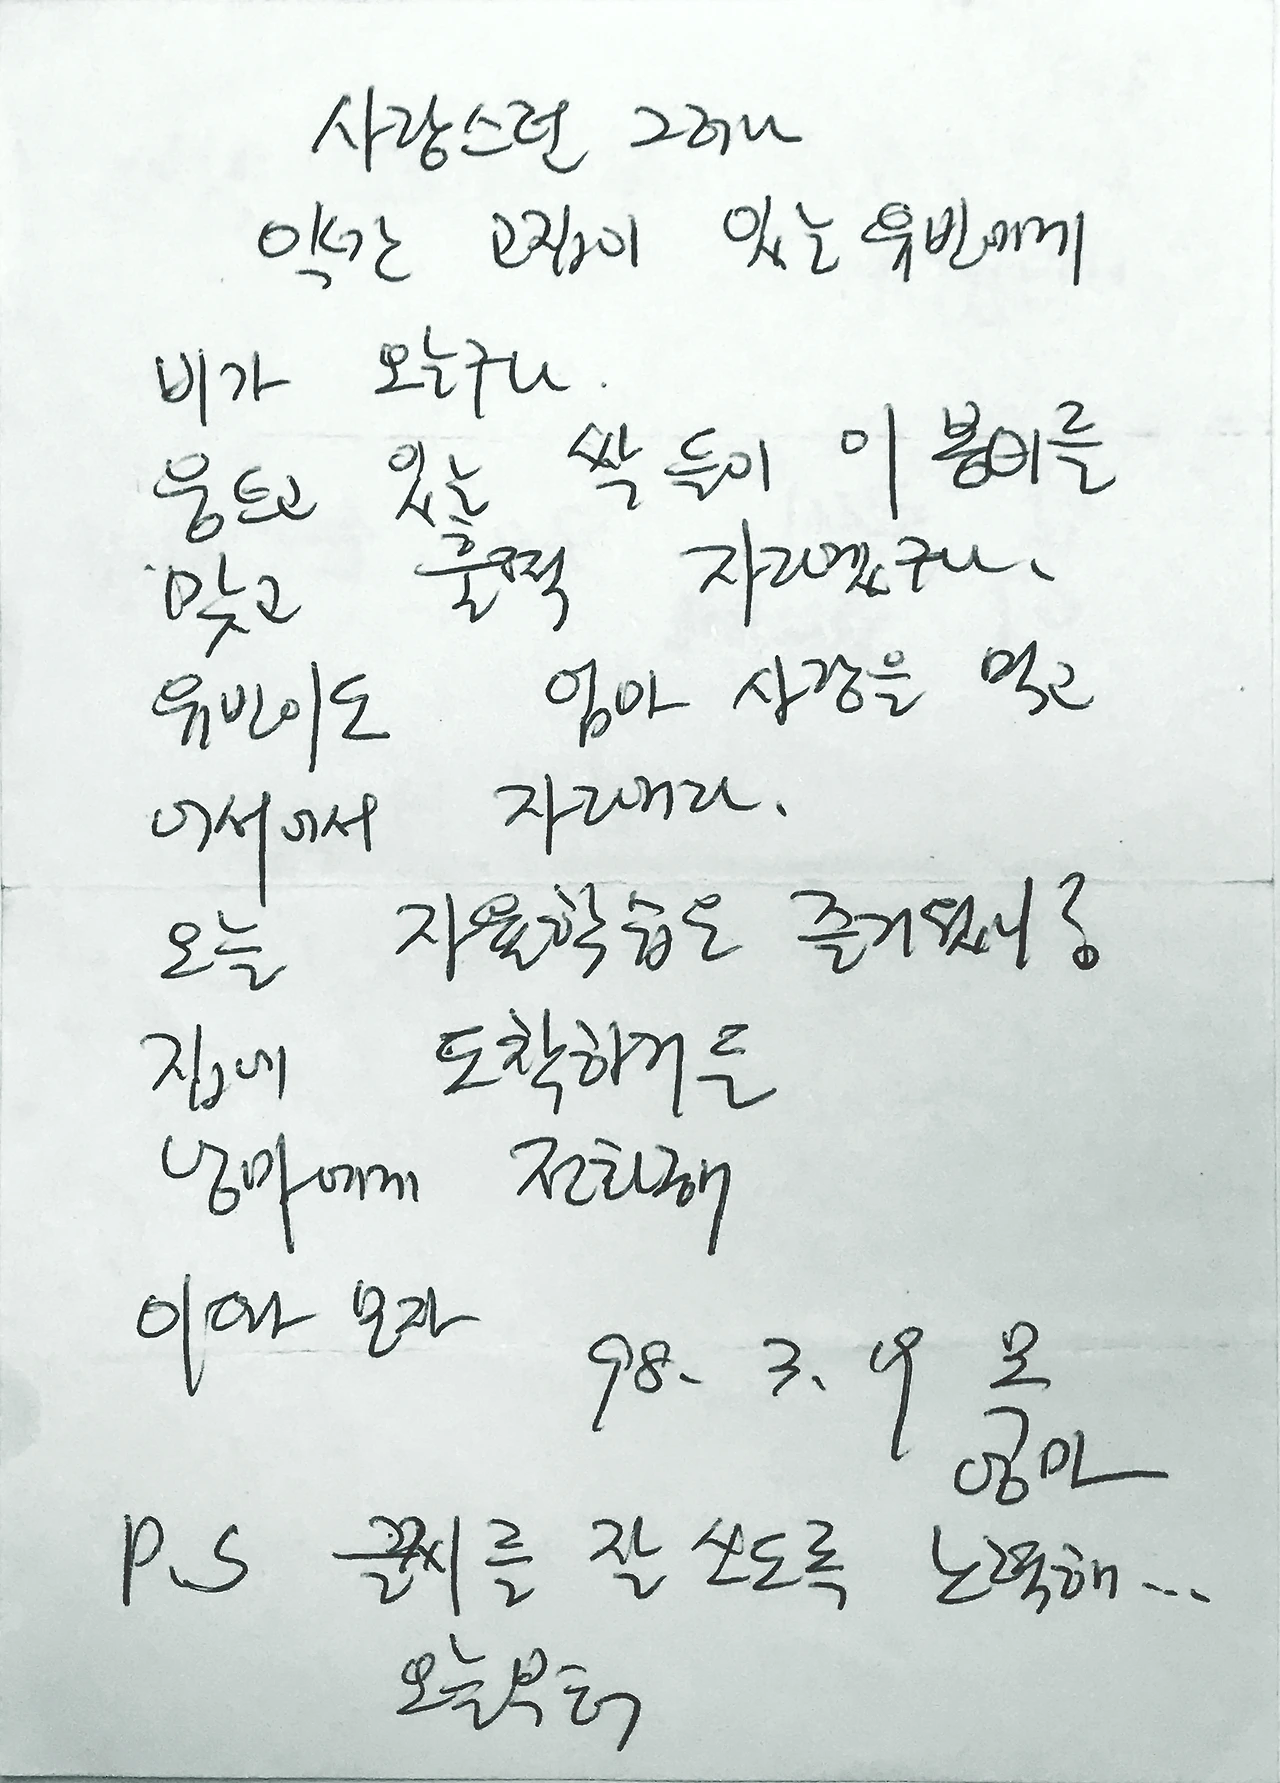 사랑스런 그러나
약간 고집이 있는 유빈에게
비가 오는구나.
웅트고 있는 싹들이 이 봄비를
맞고 훌쩍 자라겠구나.
유빈이도 엄마 사랑을 먹고
어서어서 자라거라.
오늘 자율학습은 즐거웠니?
집에 도착하거든
엄마에게 전화해
이따 보자
98. 3. 9 모
엄마
P.S 글씨를 잘 쓰도록 노력해...
오늘부터